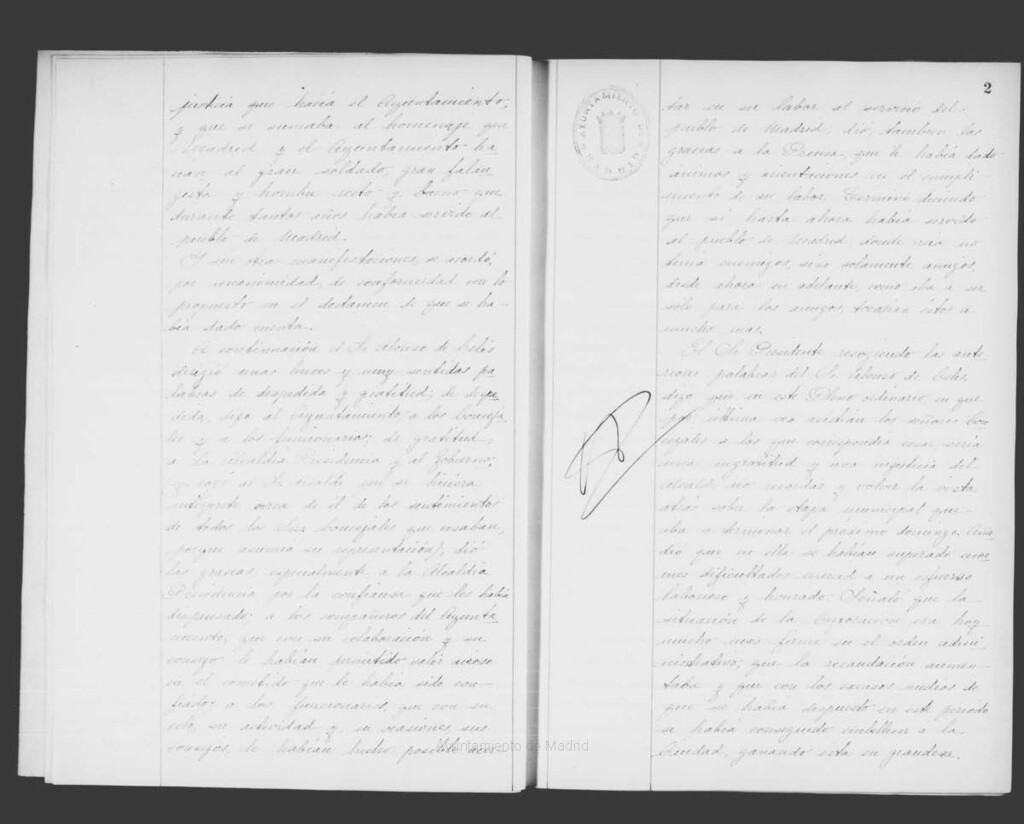 justicia que hacía el Ayuntamiento,
y que se sumaba al homenaje que
Madrid y el Ayuntamiento ha-
cían al gran soldado, gran falan
gista y hombre recto y bueno que
durante tantos años había servido al
pueblo de Madrid.
Y sin otras manifestaciones, se acordó,
por unanimidad, de conformidad con lo
propuesto en el dictamen de que se ha-
bía dado cuenta.
A continuación el Sr. Alonso de Celis
dirigió unas breves y muy sentidas pa
labras de despedida y gratitud; de despe
dida, dijo al Ayuntamiento, a los Conceja-
les y a los funcionarios; de gratitud,
a la Alcaldía Presidencia y al Gobierno,
(y rogó al Sr. Alcalde que se hiciera
intérprete cerca de él de los sentimientos
de todos los Sres. Concejales que cesaban,
porque asumía su representación), dió
las gracias especialmente, a la Alcaldía
Presidencia por la confianza que les había
dispensado; a los compañeros del Ayunta
miento, que con su colaboración y su
consejo le habían permitido salir airoso
en el cometido que le había sido con-
fiado; a los funcionarios, que con su
celo, su actividad y, en ocasiones, sus
consejos, le habían hecho posible
Ayuntamiento de Madrid
2
AYUNTAMIENTO DE MADRID
tar en su labor al servicio del
pueblo de Madrid; dió, también las
gracias a la Prensa, que le había dado
ánimos y orientaciones en el cumpli
miento de su labor. Terminó diciendo
que si hasta ahora había servido
al pueblo de Madrid, donde creía no
tenía enemigos, sino solamente amigos,
desde ahora en adelante, como iba a ser
sólo para los amigos, tocarían éstos a
mucho más.
El Sr. Presidente recogiendo las ante
riores palabras del Sr. Alonso de Celis,
dijo que en este Pleno ordinario, en que
por última vez asistían los señores Con
cejales a los que correspondía cesar, sería
una ingratitud y una injusticia del
Alcalde no recordar y volver la vista
atrás sobre la etapa municipal que
iba a terminar el próximo domingo. Aña
dió que en ella se habían superado enor
mes dificultades merced a un esfuerzo
laborioso y honrado. Señaló que la
situación de la Corporación era hoy
mucho más firme en el orden admi
nistrativo; que la recaudación aumen-
taba y que con los escasos medios de
que se había dispuesto en este período
se había conseguido embellecer a la
Ciudad, ganando ésta en grandeza.